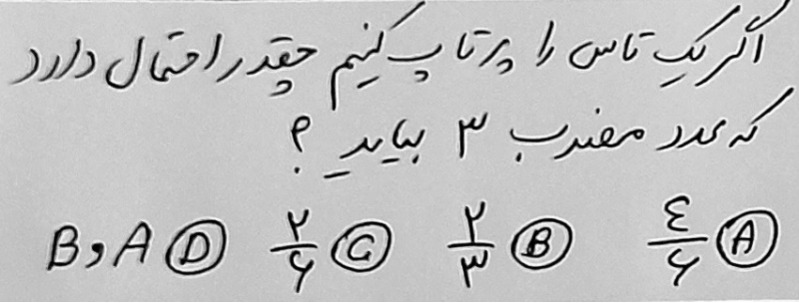 اگر یک تاس را پرتاب کنیم چقدر احتمال دارد
که عدد مضرب ۳ بیاید ؟
A ٤/۶ B ۲/۳ C ۲/۶ D A و B